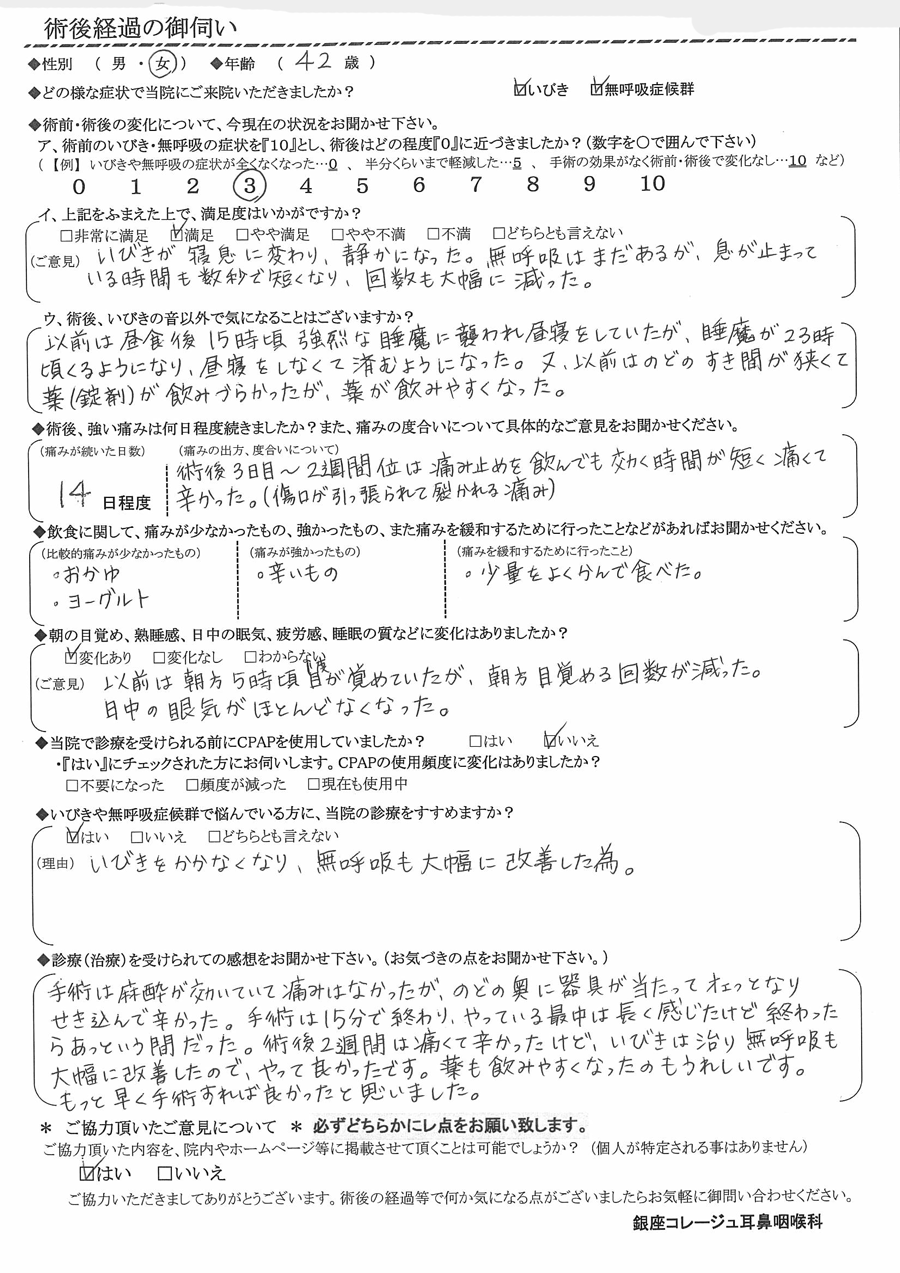 術後経過の御伺い
◆性別 （ 男 ・ 女 ） ◆年齢 （ 42 歳 ）
◆どの様な症状で当院にご来院いただきましたか？ ☑いびき ☑無呼吸症候群
◆術前・術後の変化について、今現在の状況をお聞かせ下さい。
ア、術前のいびき・無呼吸の症状を『10』とし、術後はどの程度『0』に近づきましたか？(数字を○で囲んで下さい)
（【例】 いびきや無呼吸の症状が全くなくなった…0 、 半分くらいまで軽減した…5 、 手術の効果がなく術前・術後で変化なし…10 など）
0 1 2 3 4 5 6 7 8 9 10
イ、上記をふまえた上で、満足度はいかがですか？
□非常に満足 ☑満足 □やや満足 □やや不満 □不満 □どちらとも言えない
（ご意見） いびきが 寝息に変わり、静かになった。無呼吸はまだあるが、息が止まって
いる時間も数秒で短くなり、回数も大幅に減った。
ウ、術後、いびきの音以外で気になることはございますか？
以前は昼食後15時頃 強烈な睡魔に襲われ昼寝をしていたが、睡魔が23時
頃くるようになり、昼寝をしなくて済むようになった。又、以前はのどのすき間が狭くて
薬(錠剤)が飲みづらかったが、薬が飲みやすくなった。
◆術後、強い痛みは何日程度続きましたか？また、痛みの度合いについて具体的なご意見をお聞かせください。
（痛みが続いた日数） （痛みの出方、度合いについて）
術後3日目～2週間位は痛み止めを飲んでも効く時間が短く痛くて
14 日程度 辛かった。(傷口が引っ張られて裂かれる痛み)
◆飲食に関して、痛みが少なかったもの、強かったもの、また痛みを緩和するために行ったことなどがあればお聞かせください。
（比較的痛みが少なかったもの） （痛みが強かったもの） （痛みを緩和するために行ったこと）
。おかゆ 。辛いもの 。少量をよくかんで食べた。
。ヨーグルト
◆朝の目覚め、熟睡感、日中の眠気、疲労感、睡眠の質などに変化はありましたか？
☑変化あり □変化なし □わからない
（ご意見） 以前は朝方5時頃毎度目が覚めていたが、朝方目覚める回数が減った。
日中の眠気がほとんどなくなった。
◆当院で診療を受けられる前にCPAPを使用していましたか？ □はい ☑いいえ
・『はい』にチェックされた方にお伺いします。CPAPの使用頻度に変化はありましたか？
□不要になった □頻度が減った □現在も使用中
◆いびきや無呼吸症候群で悩んでいる方に、当院の診療をすすめますか？
☑はい □いいえ □どちらとも言えない
（理由） いびきをかかなくなり、無呼吸も大幅に改善した為。
◆診療（治療）を受けられての感想をお聞かせ下さい。（お気づきの点をお聞かせ下さい。）
手術は麻酔が効いていて痛みはなかったが、のどの奥に器具が当たってオエッとなり
せき込んで辛かった。手術は15分で終わり、やっている最中は長く感じたけど終わった
らあっという間だった。術後2週間は痛くて辛かったけど、いびきは治り無呼吸も
大幅に改善したので、やって良かったです。薬も飲みやすくなったのもうれしいです。
もっと早く手術すれば良かったと思いました。
＊ ご協力頂いたご意見について ＊ 必ずどちらかにレ点をお願い致します。
ご協力頂いた内容を、院内やホームページ等に掲載させて頂くことは可能でしょうか？ （個人が特定される事はありません）
☑はい □いいえ
ご協力いただきましてありがとうございます。術後の経過等で何か気になる点がございましたらお気軽に御問い合わせください。
銀座コレージュ耳鼻咽喉科